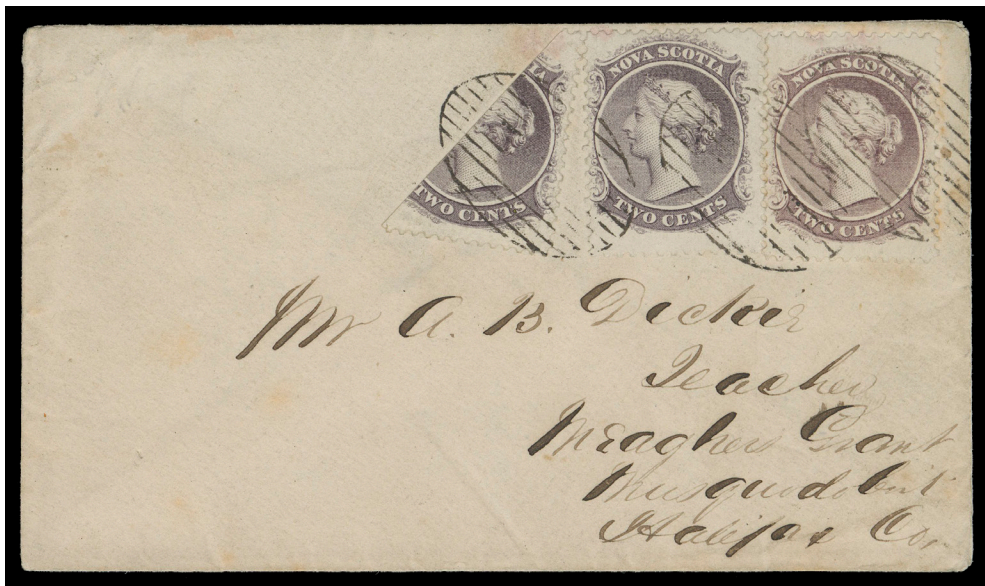 VA
TWO CENTS
NOVA SCOTIA
TWO CENTS
NOVA SCOTIA
TWO CENTS
Mr A. B. Dickie
Teacher
Meaghers Grant
Musquodoboit
Halifax Co.